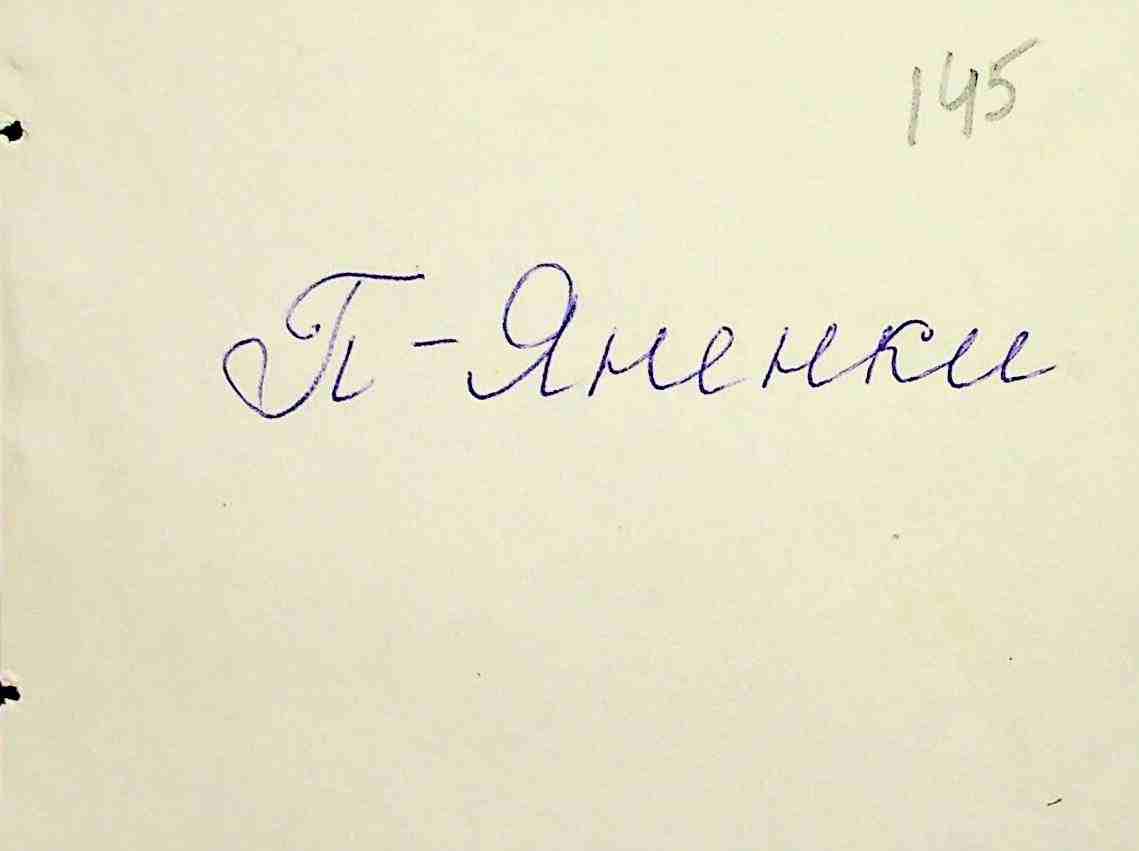 145
П-Яненки